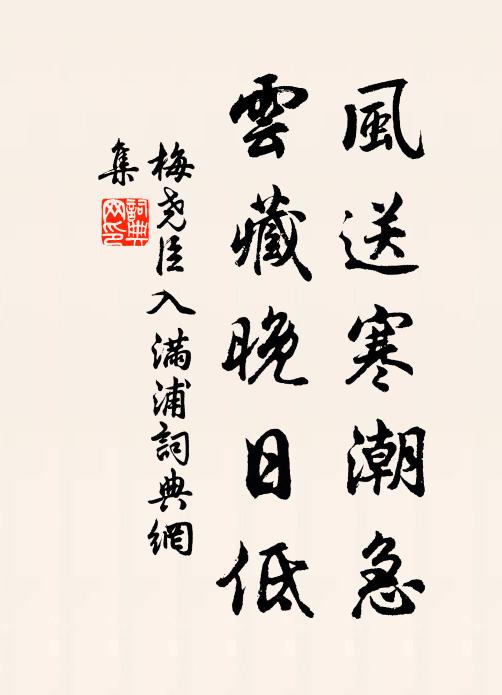 風送寒潮急
雲藏晚日低
梅堯臣入滿浦詞典網
集
詞典網印